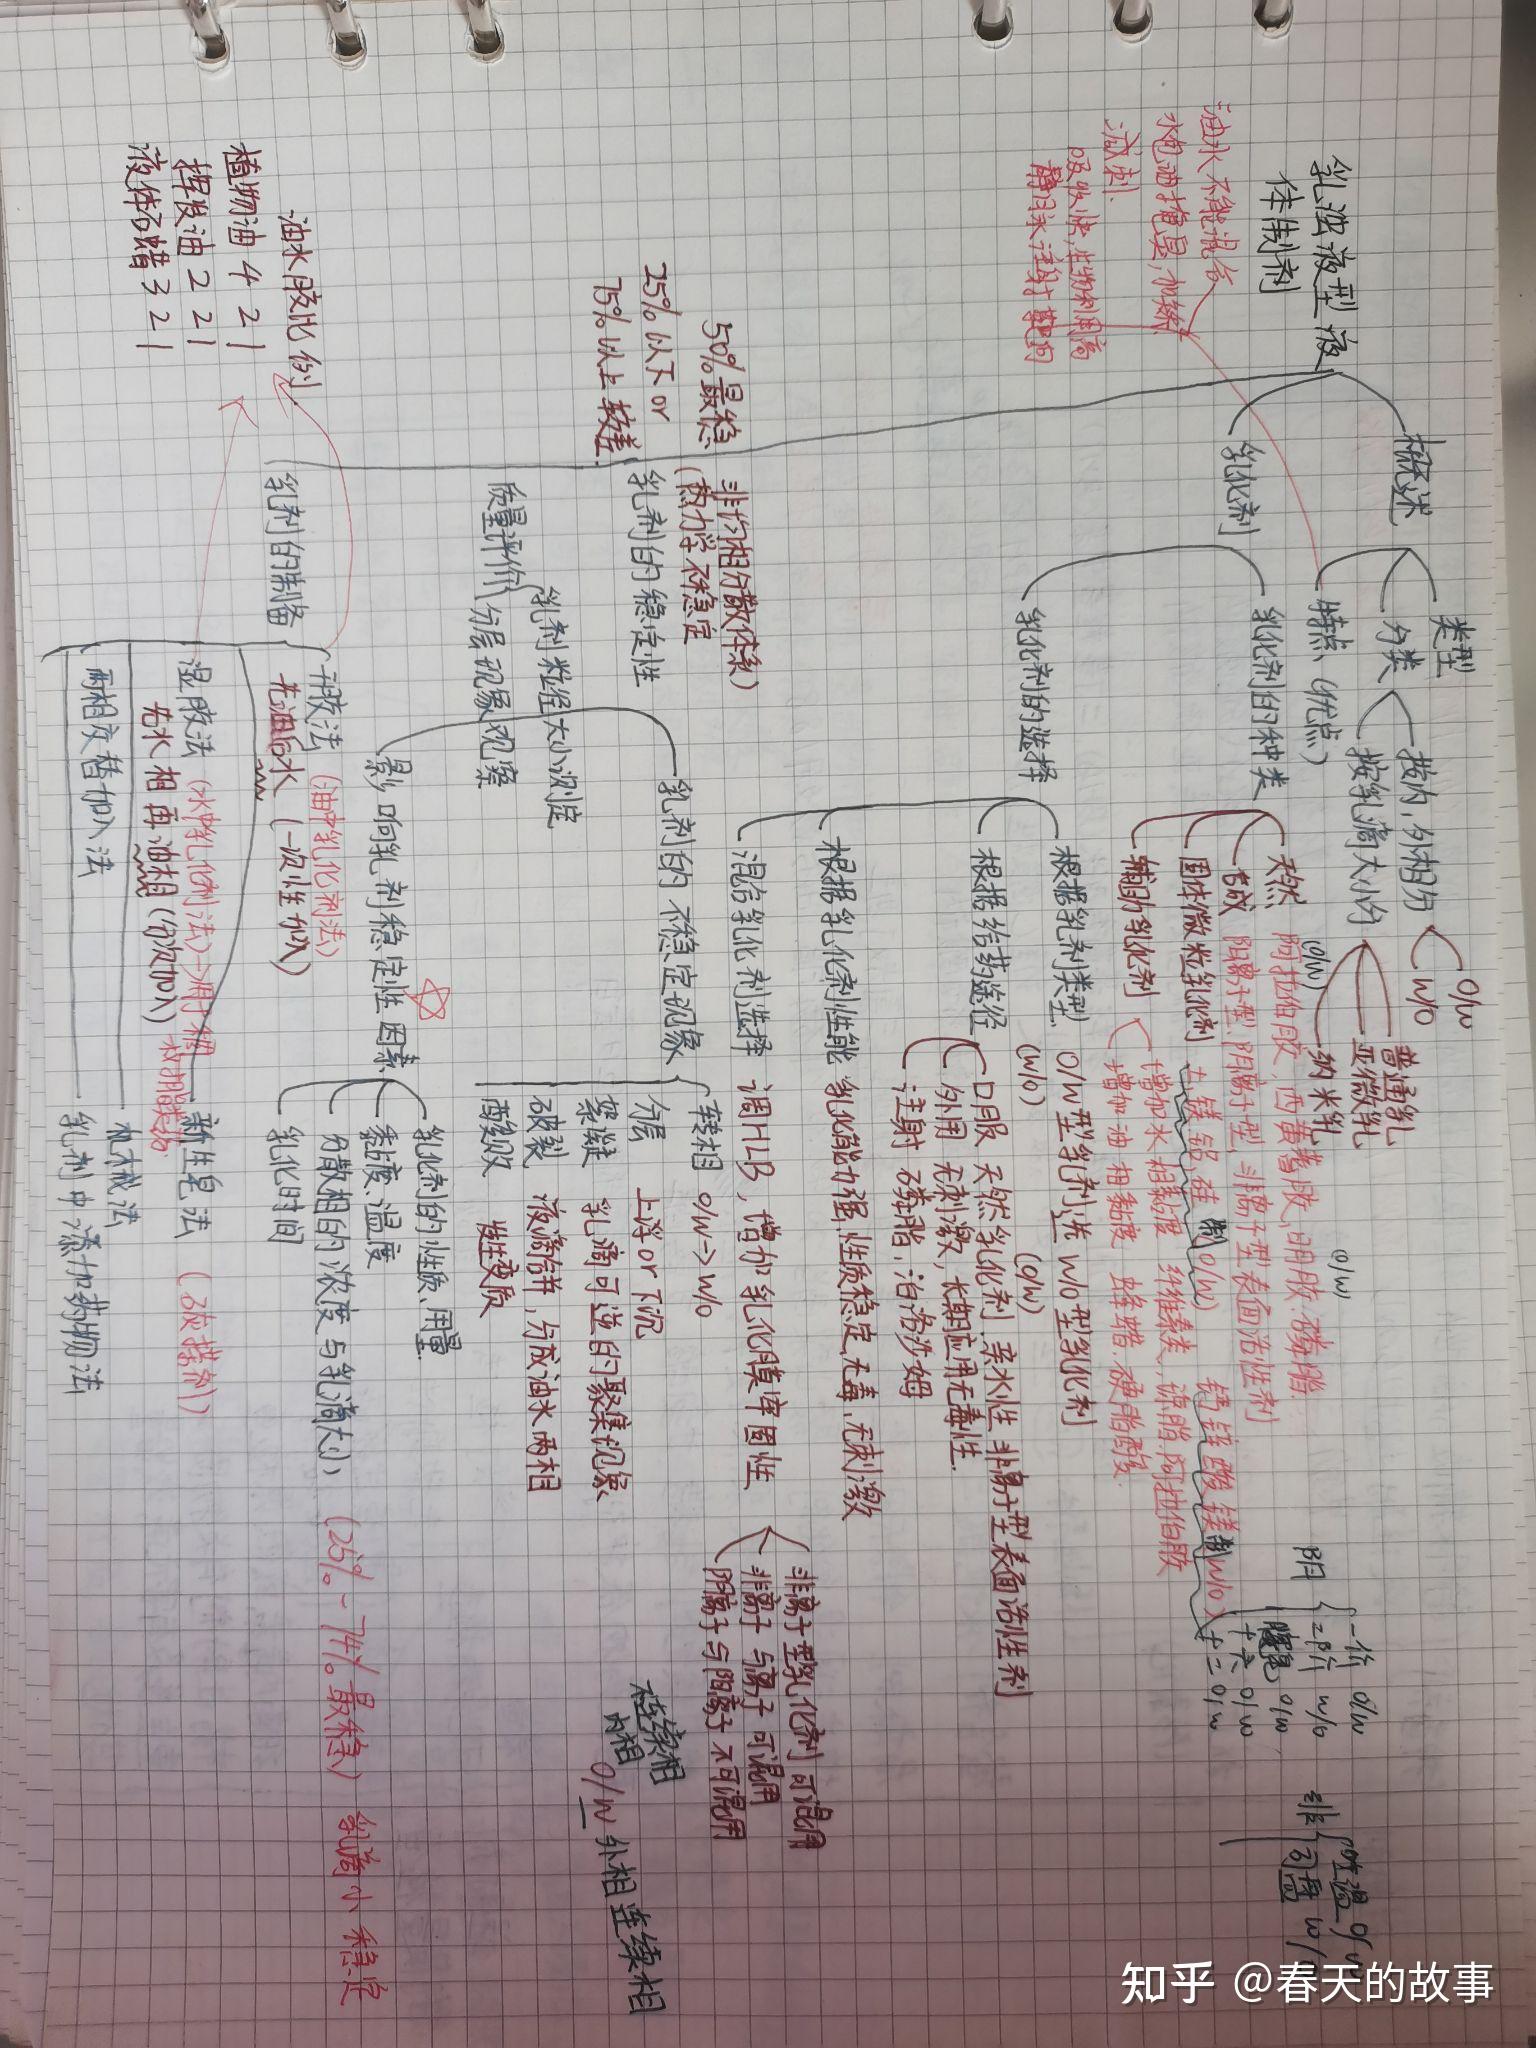 乳浊液型液
体制剂
油水不能混合
水包油掩臭,加矫
减刺.
吸收快,生物利用高
静脉注射靶向
概述
类型
分类
特点(优点)
按内,外相分
O/w
w/o
按乳滴大小分
普通乳
亚微乳
纳米乳
乳化剂
乳化剂的种类
天然 阿拉伯胶,西黄蓍胶,明胶.磷脂
(O/w)
(O/w)
合成 阳离子型.阴离子型,非离子型表面活性剂
固体微粒乳化剂
镁.铝.硅 (O/w)
钙 锌 w/o)
辅助乳化剂
增加水相黏度 纤维素类,琼脂.阿拉伯胶
增加油相黏度 蜂蜡.硬脂酸
阴
一价 O/w
二价 w/o
O/w
十六 O/w
十二 O/w
非
吐温 O/w
司盘
乳化剂的选择
根据乳剂类型 O/w型乳剂选 w/o型乳化剂
(w/o)
(O/w)
根据给药途径
口服 天然乳化剂.亲水性 非离子型表面活性剂
外用 无刺激,长期应用无毒性.
注射 磷脂,泊洛沙姆
根据乳化剂性能 乳化能力强,性质稳定,无毒,无刺激
混合乳化剂选择 调HLB,增加乳化膜牢固性
非离子型乳化剂可混用
非离子与离子 可混用
阴离子与阳离子 不可混用
50%最稳
25%以下or
75%以上较差.
非均相分散体系)
(热力学不稳定
乳剂的稳定性
乳剂的不稳定现象
转相 O/w→w/o
分层 上浮or下沉
絮凝 乳滴可逆的聚集现象
破裂 液滴合并,分成油水两相
酸败 发生变质
连续相
内相
O/w 外相连续相
影响乳剂稳定性因素
乳化剂的性质.用量
黏度.温度
分散相的浓度与乳滴大小
乳化时间
(25%-74%最稳) 乳滴小稳定
质量评价
乳剂粒径大小测定
分层现象观察
乳剂的制备
油水胶比例.
植物油 4 2 1
挥发油 2 2 1
液体石蜡 3 2 1
干胶法 (油中乳化剂法)
先油后水 (一次性加入)
湿胶法 (水中乳化剂法)
先水相再油相 (分次加入)
两相交替加入法
新生皂法 (石灰搽剂)
机械法
乳剂中添加药物法
知乎 @春天的故事